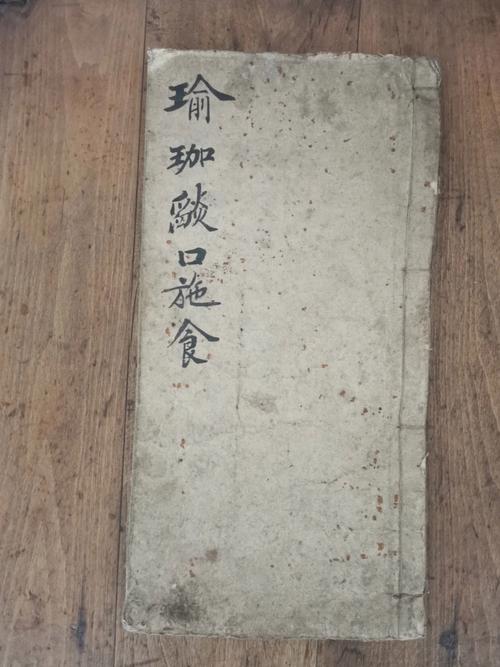 瑜珈燄口施食